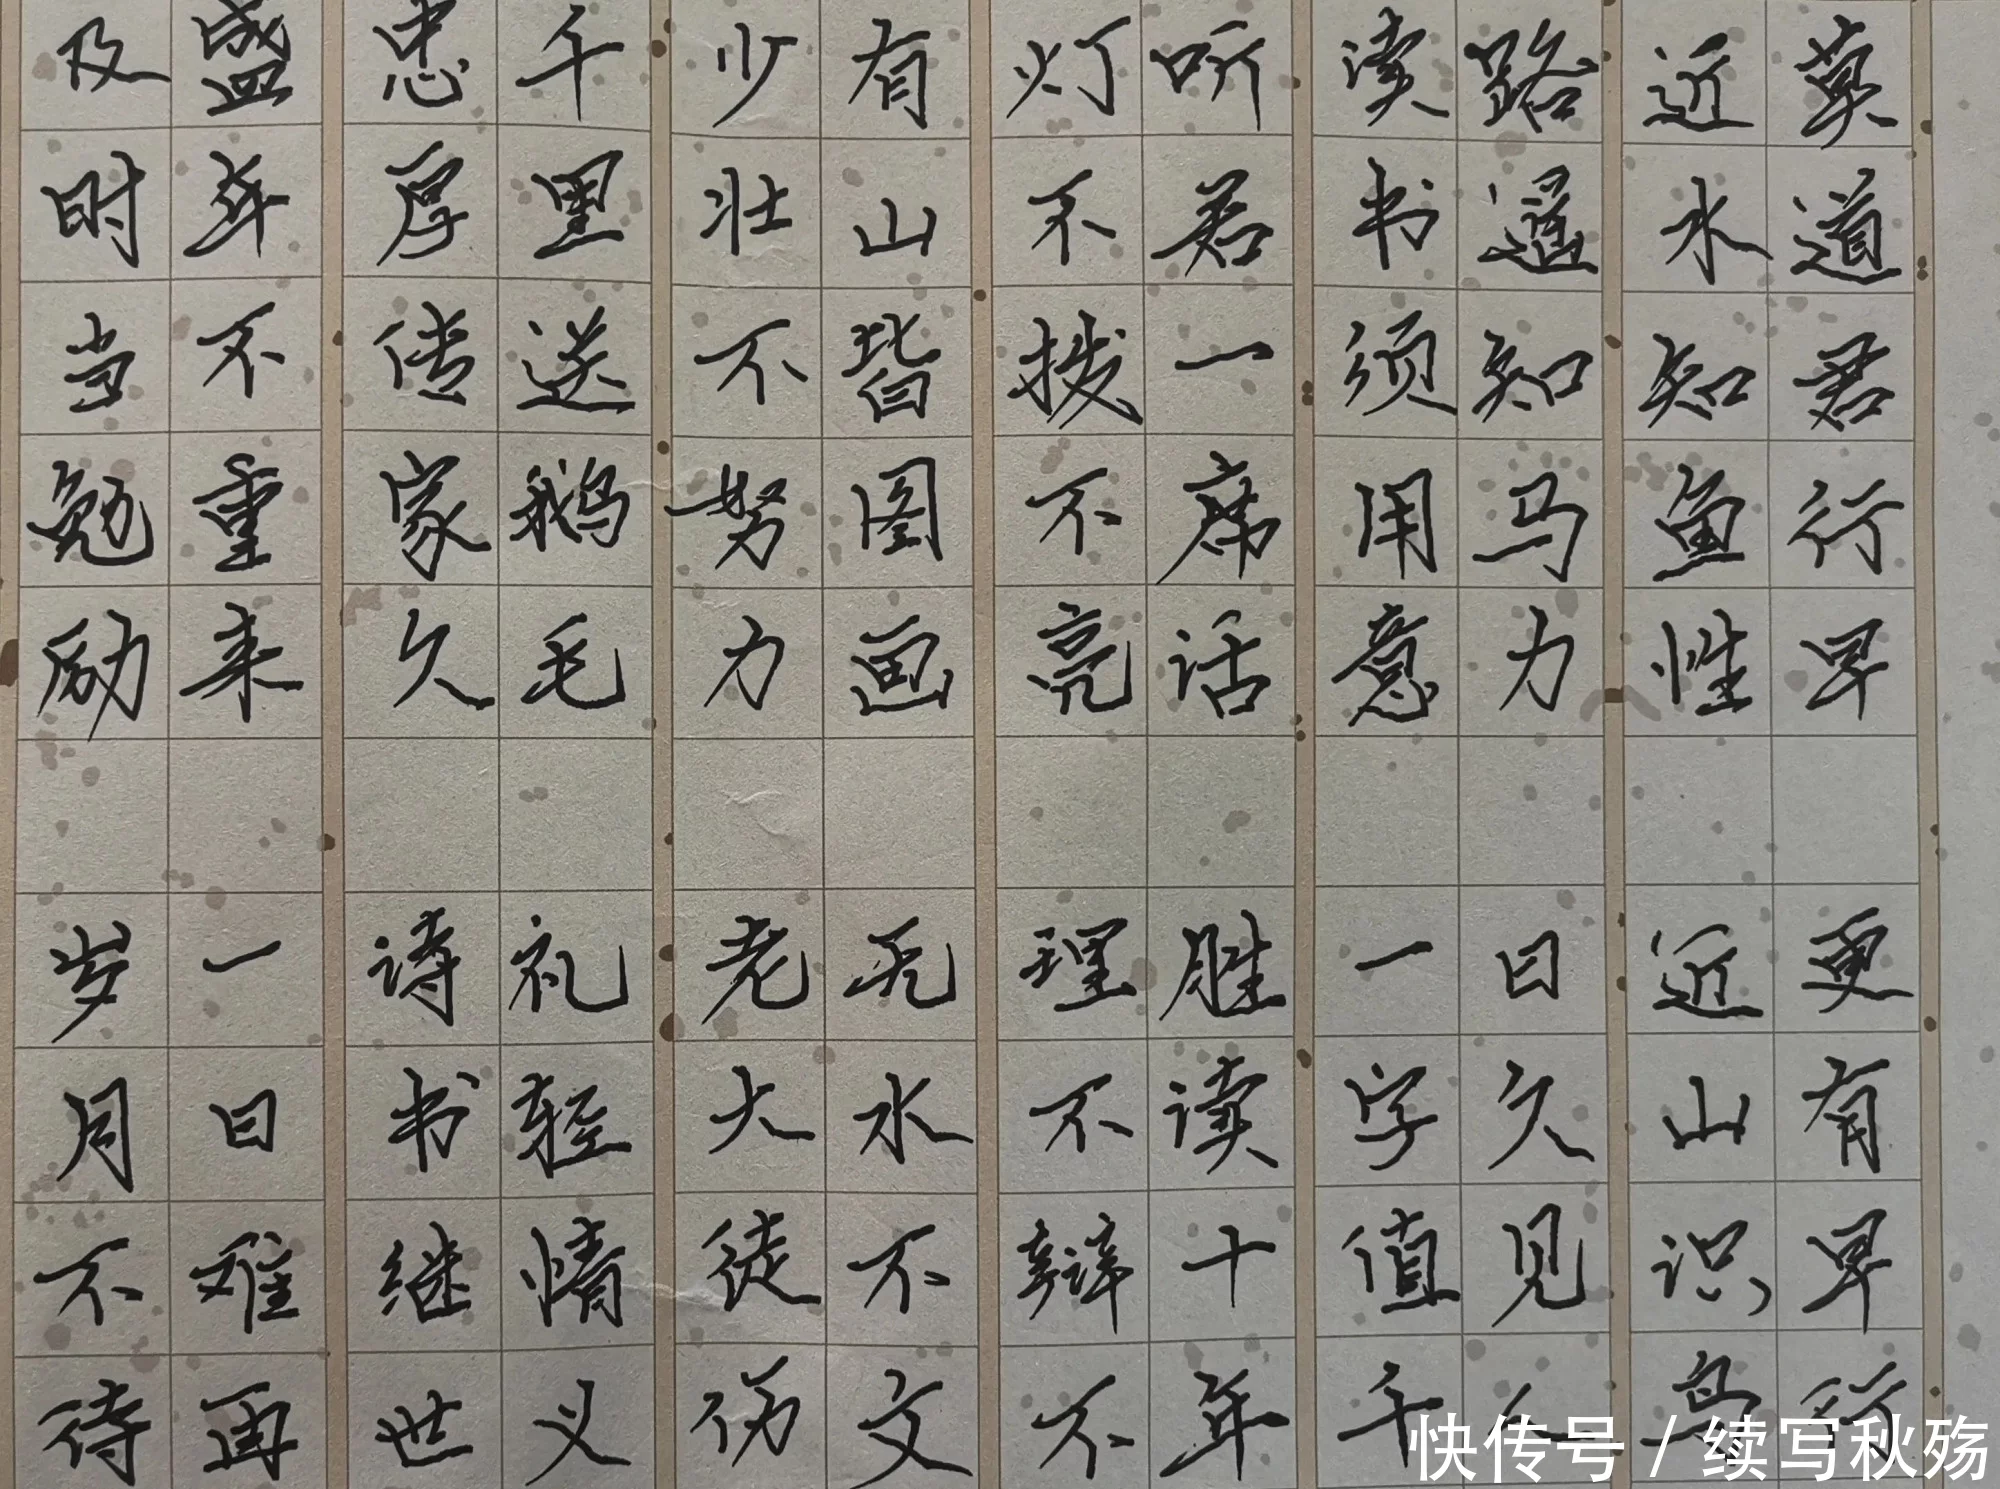 莫道君行早 更有早行
近水知鱼性 近山识鸟
路遥知马力 日久见人
读书须用意 一字值千
听君一席话 胜读十年
灯不拨不亮 理不辩不
有山皆图画 无水不文
少壮不努力 老大徒伤
千里送鹅毛 礼轻情义
忠厚传家久 诗书继世
盛年不重来 一日难再
及时当勉励 岁月不待
快传号 / 续写秋殇